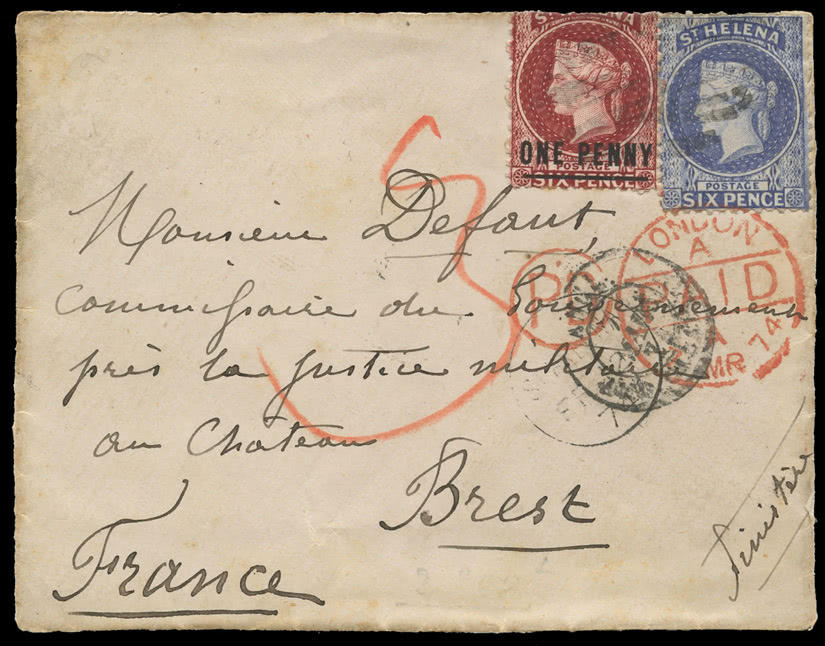 ST HELENA
ONE PENNY
POSTAGE
SIX PENCE
ST HELENA
POSTAGE
SIX PENCE
LONDON
A
PAID
MR 74
PD
3
Monsieur Defaut,
Commissaire du Gouvernement
près la justice militaire
au Château
Brest
France
Finistère